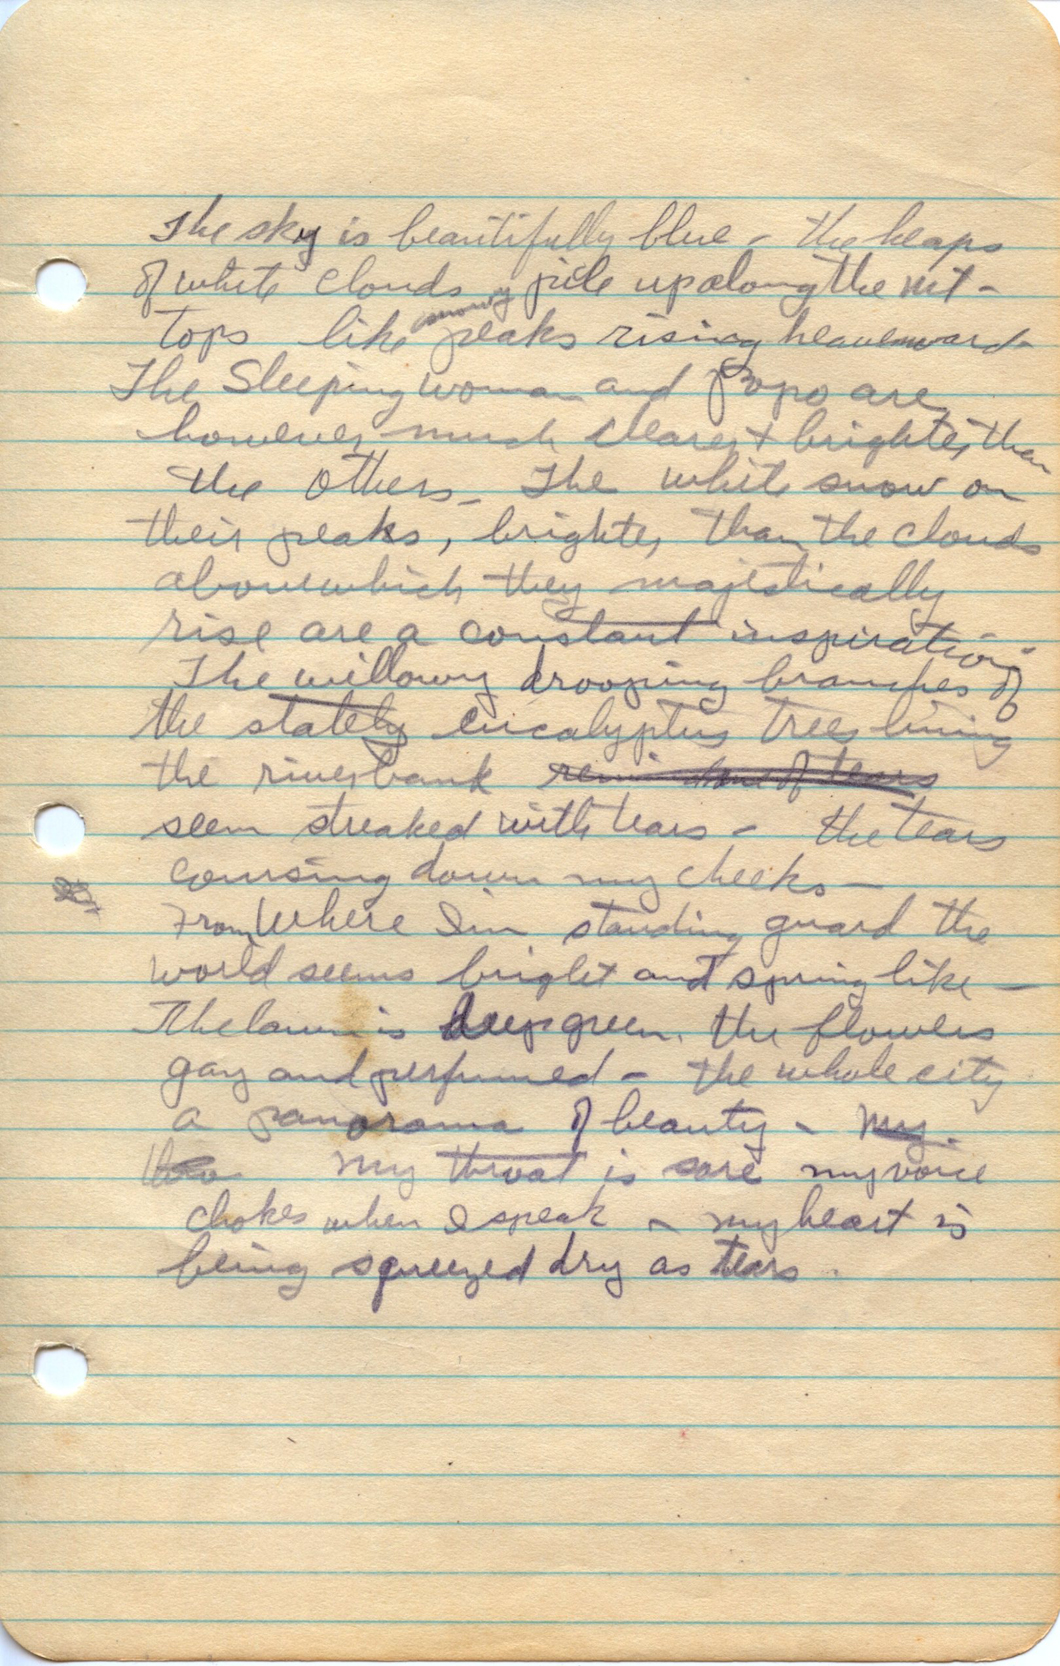 The sky is beautifully blue - the heaps
of white clouds pile up along the mt-
tops like snowy peaks rising heavenward-
The Sleeping woman and Popo are,
however, much clearer + brighter than
the others- The white snow on
their peaks, brighter than the clouds
above which they majestically
rise are a constant inspiration-
The willowy drooping branches of
the stately eucalyptus trees lining
the riverbank remind me of tears
seem streaked with tears - the tears
coursing down my cheeks-
From Where I'm standing guard the
world seems bright and spring like -
The lawn is deep green, the flowers
gay and perfumed - the whole city
a panorama of beauty - My
thro My throat is sore my voice
chokes when I speak - my heart is
being squeezed dry as tears.